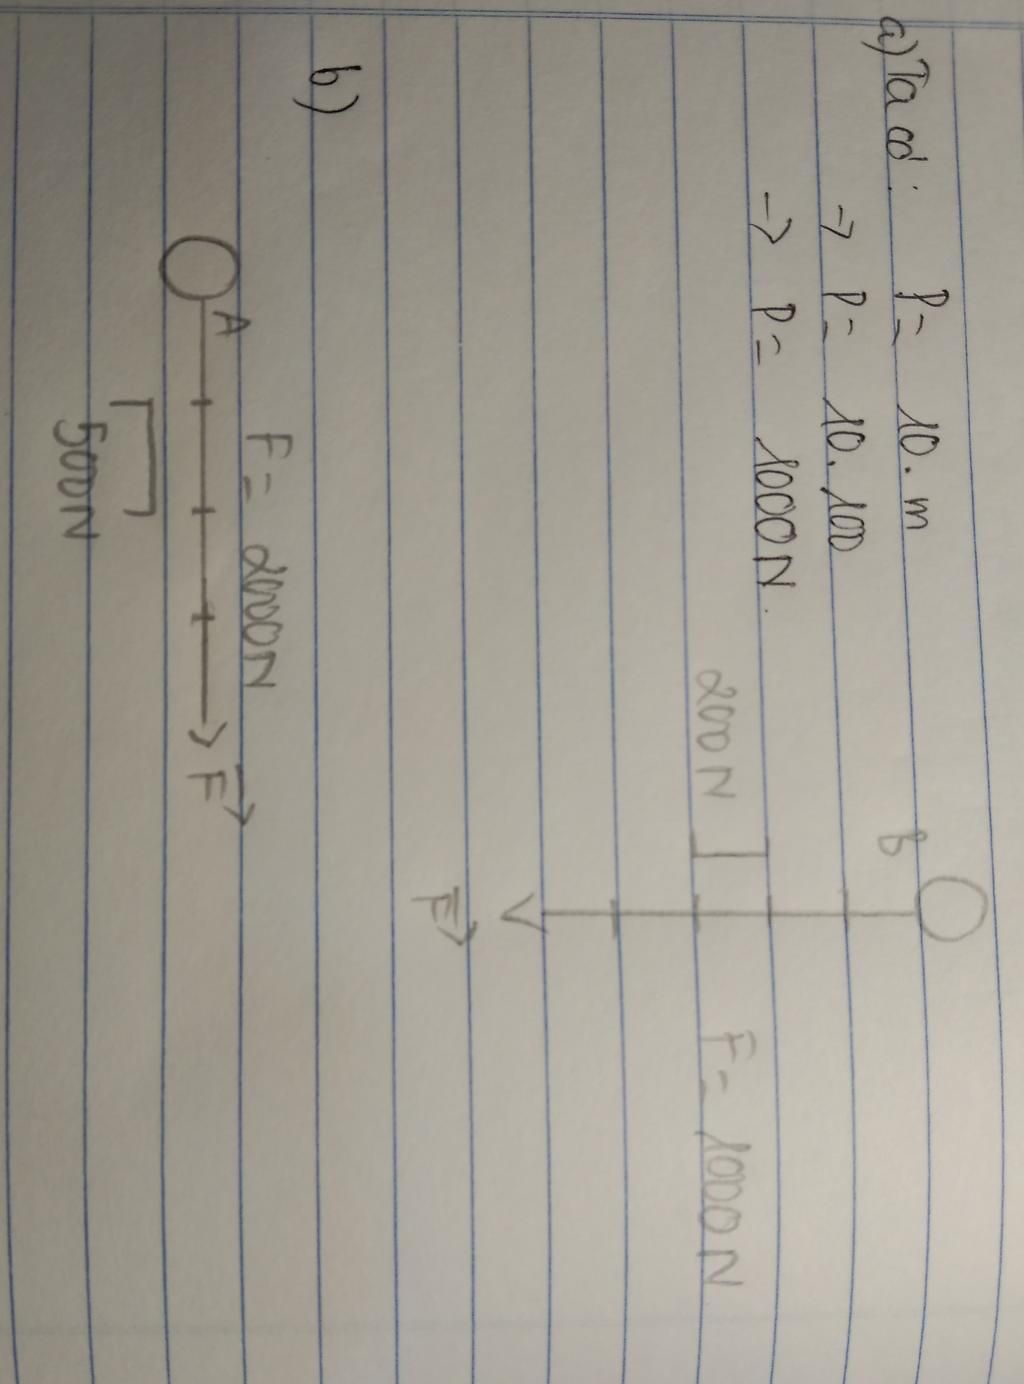 a) Ta có: P = 10.m
→ P = 10.100
→ P = 1000N.
B
200N
F = 1000N
F
b)
F = 2000N
A
F
500N